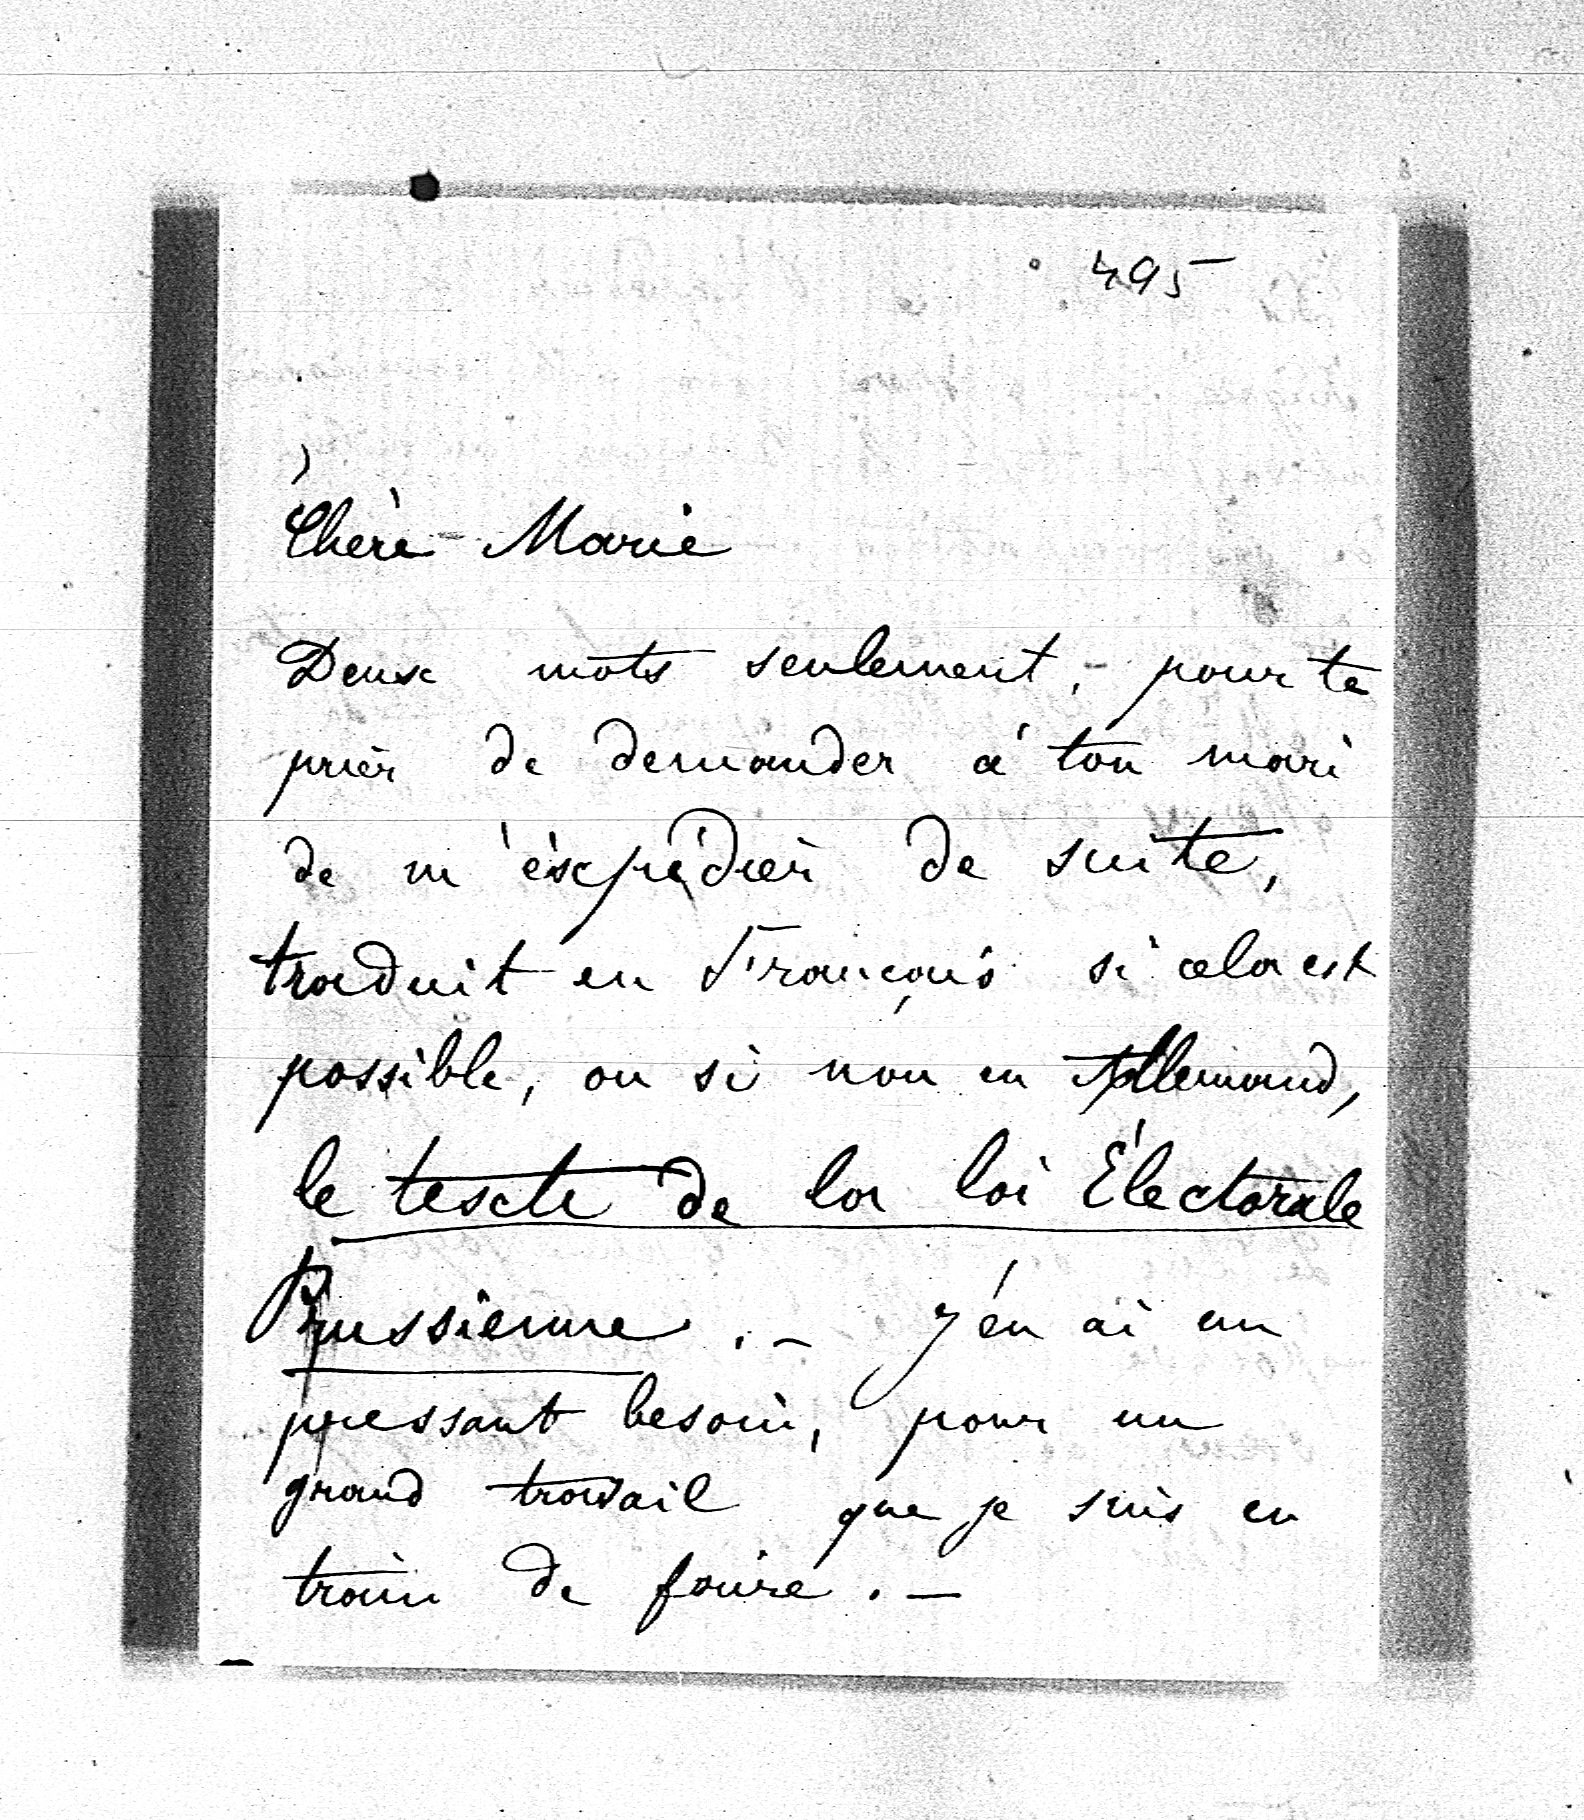 495
Chère Marie
Deux mots seulement, - pour te
prier de demander à ton mari
de m'éxpédier de suite,
traduit en Français si cela est
possible, ou si non en Allemand,
le texte de la loi Électorale
Prussienne. - J'en ai un
pressant besoin, pour un
grand travail que je suis en
train de faire. -